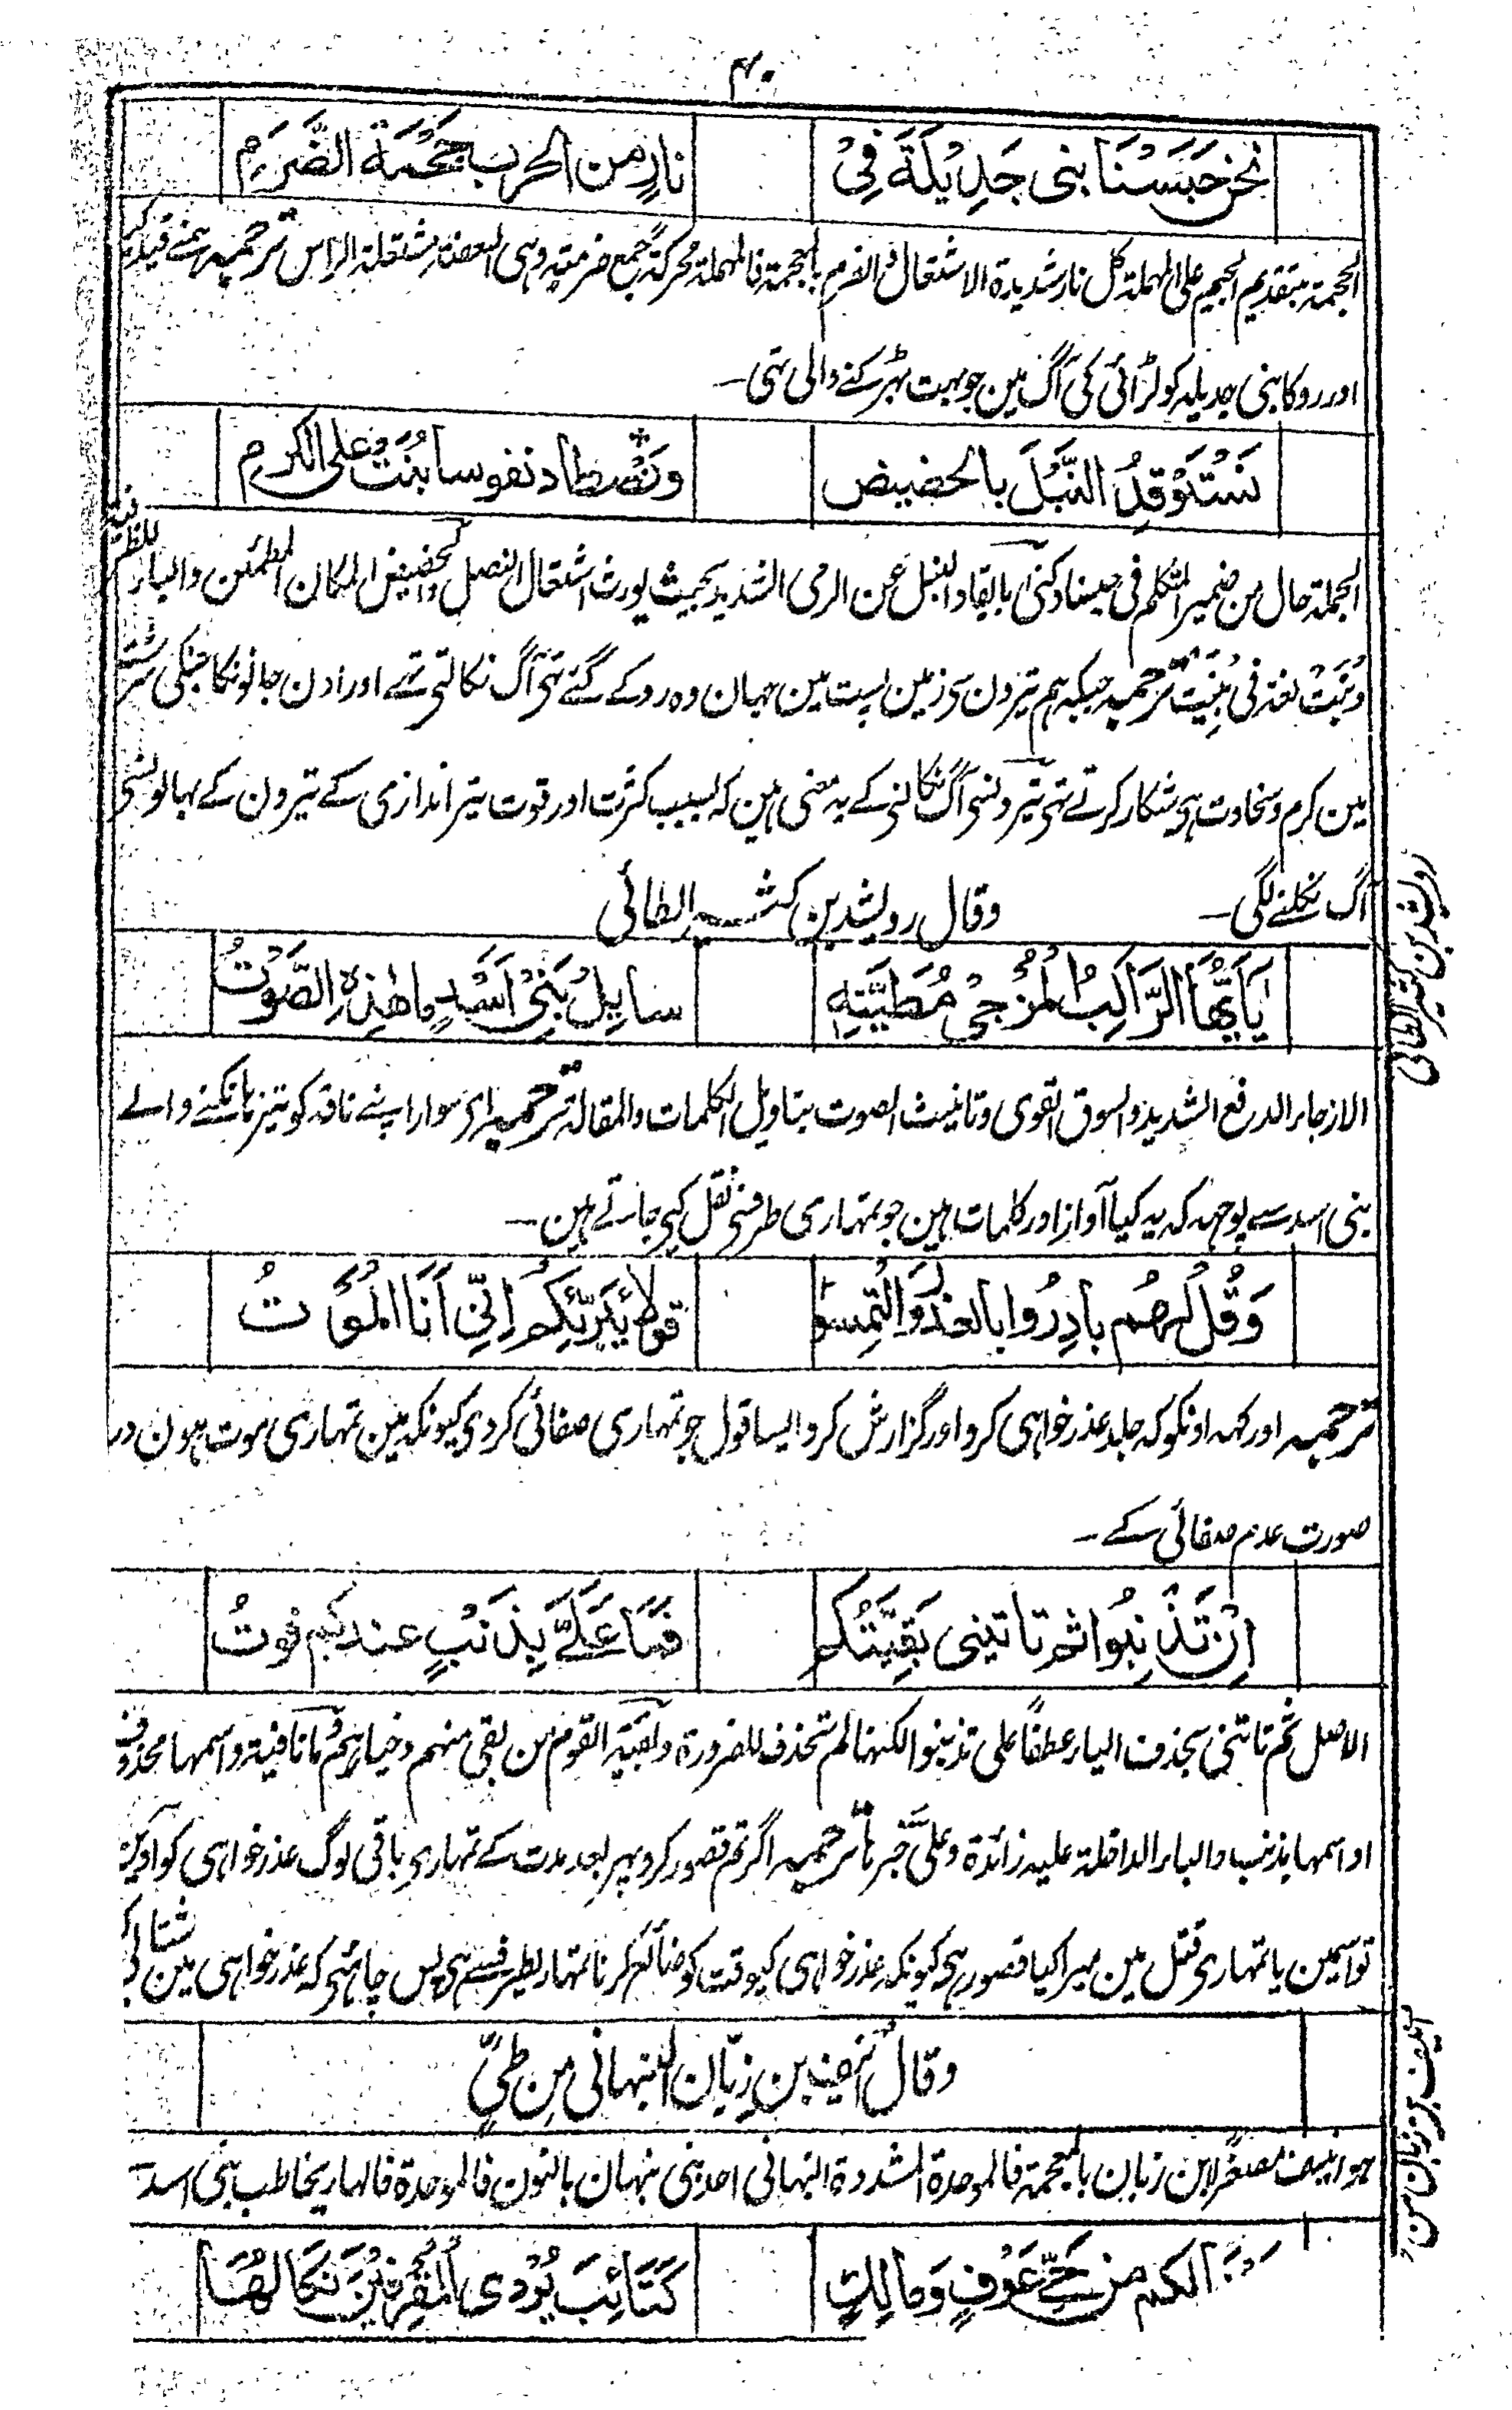 ۴۰
نحن حَبَسْنَا بنی جَدِیْلَةَ فِیْ نارٍ من الحرب جَحْمَةِ الضَّرَمِ
الجحمة بتقدیم الجیم علی المهملة کل نار شدیدة الاشتعال والضرم بالمعجمة فالمهملة محرکة جمع ضرمة وهی السعفة مشتعلة الراس ترجمہ ہمنے قید کیا
اور روکا بنی جدیلہ کو لڑائی کی آگ مین جو بہت بھڑکنے والی تہی۔
نَسْتَوْقِدُ النَّبْلَ بالحضیض ونَصْطاد نفوسا بُنَتْ علی الکرمِ
الجملة حال من ضمیر المتکلم فی حبسنا وکنی بایقاد النبل عن الرمی الشدید بحیث یورث اشتعال النصل والحضیض المکان المطمئن والباء للظرفیة
وبُنَتْ لغة فی بُنِیَتْ ترجمہ جبکہ ہم تیرون سی زمین پست مین جہان وہ روکے گئے تہی آگ نکالتی تہے اور اون جانونکا جنکی سرشت
مین کرم وسخاوت ہی شکار کرتے تہی تیرونسی آگ نکالنی کے یہ معنی ہین کہ بسبب کثرت اور قوت تیر اندازی کے تیرون کے بہالونسی
آگ نکلنے لگی۔ وقال رویشد بن کثیر الطائی
رویشد بن کثیر الطائی
یَاَیُّهَا الرَّاکِبُ الْمُزْجِیْ مُطِیَّتِهٖ سایِلْ بَنِیْ اَسَدٍ ماهٰذِهِ الصَّوْتُ
الازجاء الدفع الشدید والسوق القوی وتانیث الصوت بتاویل الکلمات والمقالة ترجمہ ای سوار اپنے ناقہ کو تیز ہانکنے والے
بنی اسد سے پوچہہ کہ یہ کیا آواز اور کلمات ہین جو تمہاری طرفسی نقل کیی جاتے ہین۔
وَقُلْ لَهُم بادِرُوا بالعذر وَالْتَمِسُوا قولا یُبَرِّئُکم اِنِّی اَنَا الْمُوَتُ
ترجمہ اور کہہ اونکو کہ جلد عذر خواہی کرو اور گزارش کرو ایسا قول جو تمہاری صفائی کر دی کیونکہ مین تمہاری موت ہون در
صورت عدم صفائی کے۔
اِنْ تَذْنِبُوا ثم تاتینی بَقِیَّتُکم فَمَا عَلَیَّ بِذَنْبٍ عندکم فوتُ
الاصل ثم تاتنی بحذف الیاء عطفاً علی تذنبوا لکنها لم تحذف للضرورة وبقیة القوم من بقی منهم وخیارهم وما نافیة واسمها محذوف
او اسمها بذنب والباء الداخلة علیه زائدة وعلیّ خبر ما ترجمہ اگر تم قصور کرو پہر بعد مدت کے تمہاری باقی لوگ عذر خواہی کو آوین
تو اسمین یا تمہاری قتل مین میرا کیا قصور ہی کیونکہ عذر خواہی کیوقت کو ضائع کرنا تمہاریطرفسے ہی پس چاہئی کہ عذر خواہی مین شتابی کرو
وقال اُنیف بن زبّان النبهانی من طیّ
انیف بن زبان من
هو انیف مصغر لابن زبان بالمعجمة فالموحدة المشددة النبهانی احد بنی نبهان بالنون فالموحدة فالهاء یخاطب بنی اسد
الکم من حَیِّ عَوْفٍ وَمالِكٍ کَتَائِبَ یُرْدی المُقْرِفِیْنَ نَکَالُهَا